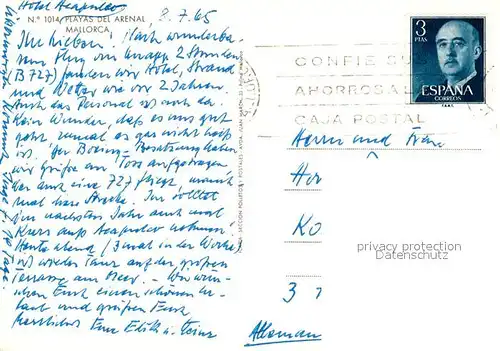 Hotel Acapulco
N.º 1014 PLAYAS DEL ARENAL
MALLORCA
8.7.65
Ihr Lieben! Nach wunderba-
rem Flug von knapp 2 Stunden
(B 727) fanden wir Hotel, Strand
und Wetter wie vor 2 Jahren.
Auch das Personal ist noch da.
Kein Wunder, daß es uns gut
geht, zumal es gar nicht heiß
ist. Der Boeing-Besatzung haben
wir Grüße an Toss aufgetragen
der auch eine 727 fliegt,
mal diese Strecke. Ihr solltet
im nächsten Jahr auch mal
Kurs auf Acapulco nehmen!
Heute abend (3 mal in der Woche)
ist wieder Tanz auf der großen
Terrasse am Meer. – Wir wün-
schen Euch einen schönen Ur-
laub und grüßen Euch
herzlichst Eure Edith u. Heinz
3
PTAS
ESPAÑA
CORREOS
F.N.M.T.
CONFIE SU
AHORROS A LA
CAJA POSTAL
Herrn und Frau
Her
Ko
privacy protection
Datenschutz
3 7
Alleman